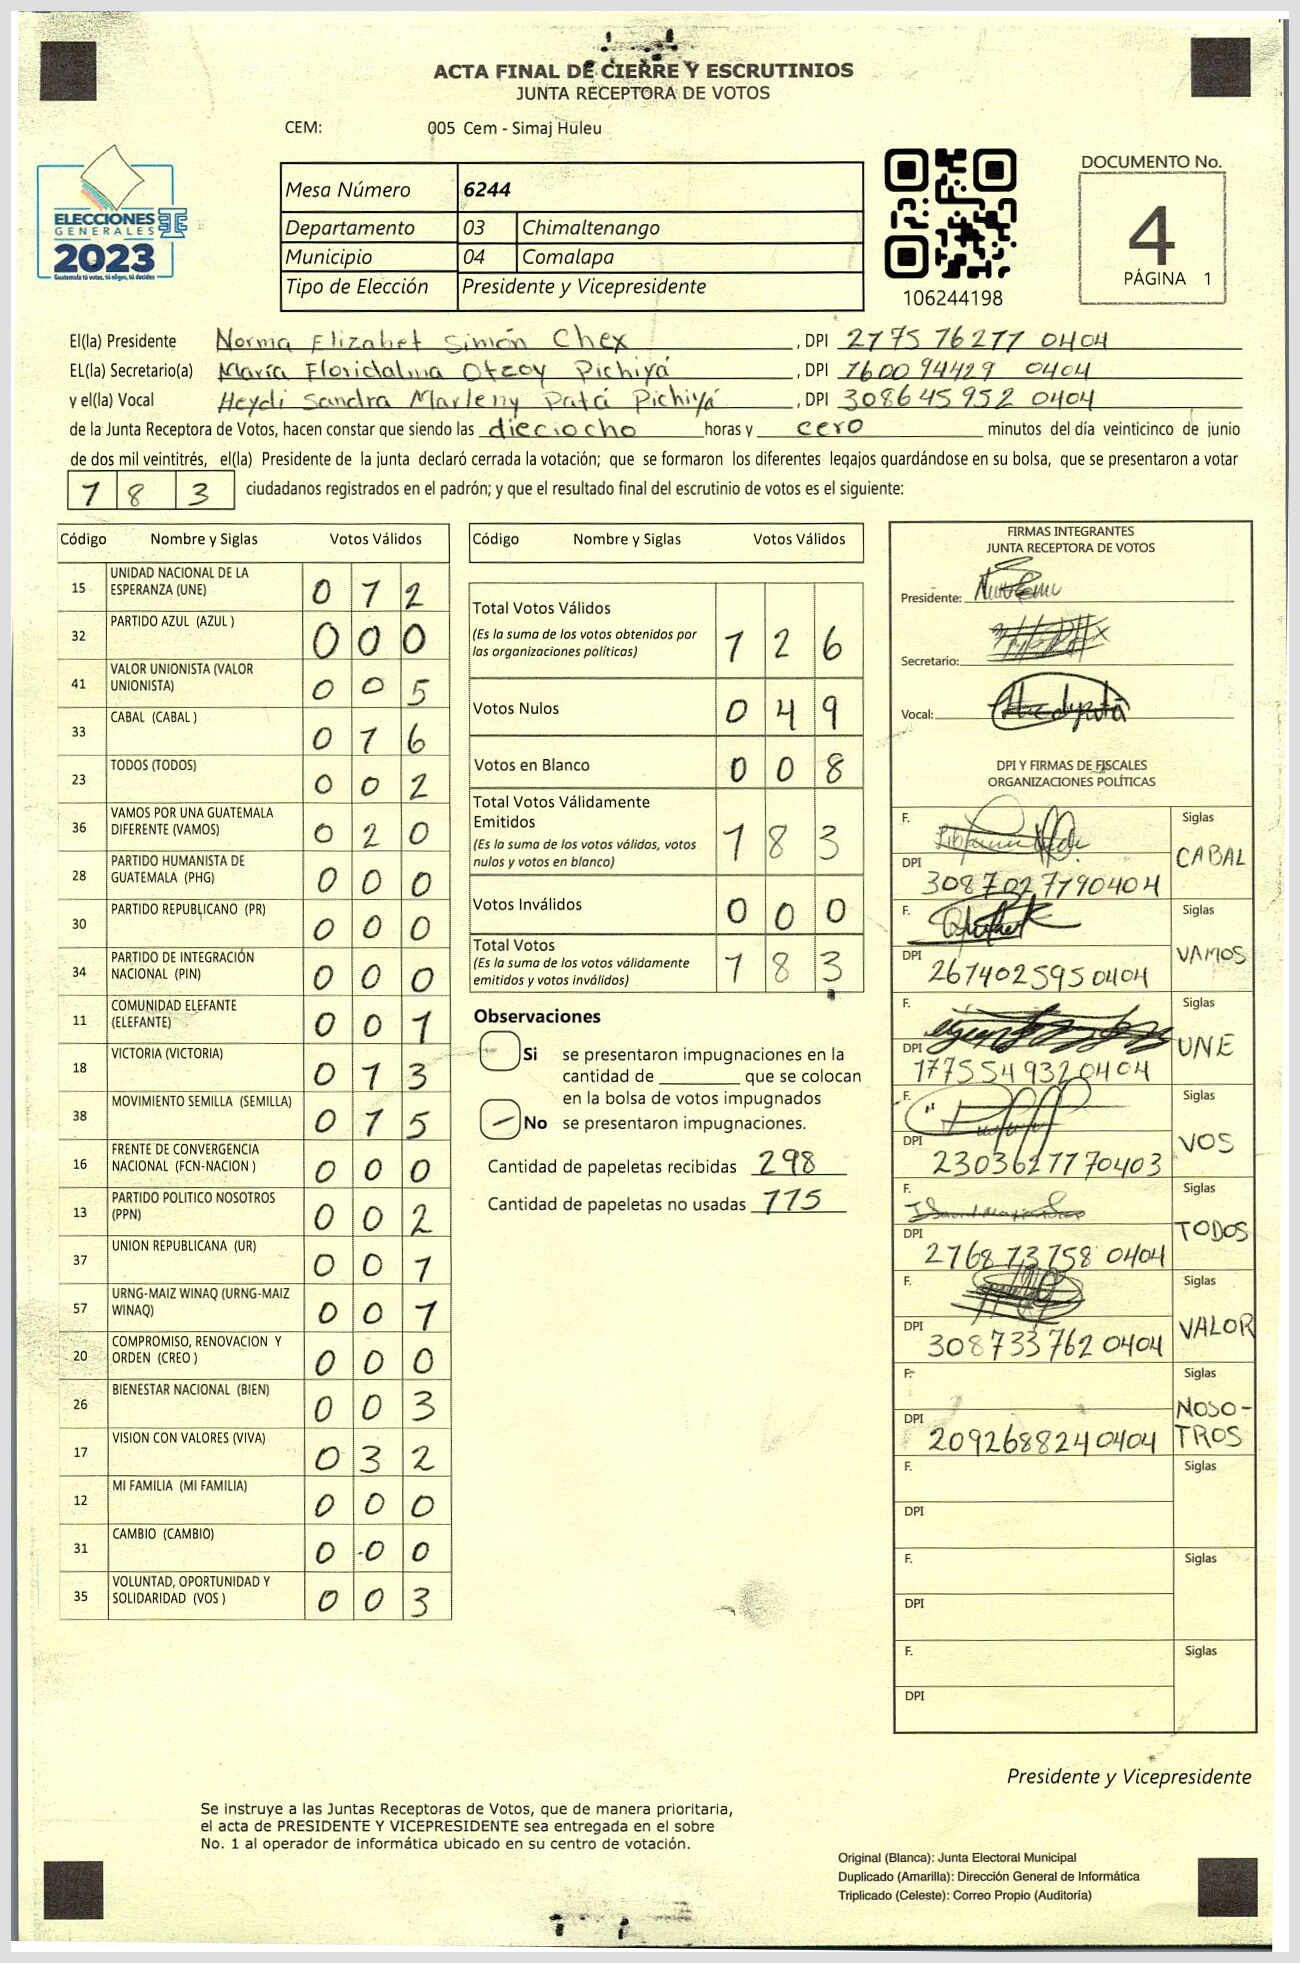 ACTA FINAL DE CIERRE Y ESCRUTINIOS
JUNTA RECEPTORA DE VOTOS
CEM: 005 Cem - Simaj Huleu
ELECCIONES
GENERALES
2023
Guatemala tú votas, tú eliges, tú decides
Mesa Número 6244
Departamento 03 Chimaltenango
Municipio 04 Comalapa
Tipo de Elección Presidente y Vicepresidente
106244198
DOCUMENTO No.
4
PÁGINA 1
El(la) Presidente Norma Elizabet Simón Chex, DPI 2775 76277 0404
EL(la) Secretario(a) María Floridalma Otzoy Pichiyá, DPI 1600 94429 0404
y el(la) Vocal Heydi Sandra Marleny Patá Pichiyá, DPI 3086 45952 0404
de la Junta Receptora de Votos, hacen constar que siendo las dieciocho horas y cero minutos del día veinticinco de junio
de dos mil veintitrés, el(la) Presidente de la junta declaró cerrada la votación; que se formaron los diferentes legajos guardándose en su bolsa, que se presentaron a votar
183 ciudadanos registrados en el padrón; y que el resultado final del escrutinio de votos es el siguiente:
Código Nombre y Siglas Votos Válidos
15 UNIDAD NACIONAL DE LA ESPERANZA (UNE) 0 1 2
32 PARTIDO AZUL (AZUL ) 0 0 0
41 VALOR UNIONISTA (VALOR UNIONISTA) 0 0 5
33 CABAL (CABAL ) 0 1 6
23 TODOS (TODOS) 0 0 2
36 VAMOS POR UNA GUATEMALA DIFERENTE (VAMOS) 0 2 0
28 PARTIDO HUMANISTA DE GUATEMALA (PHG) 0 0 0
30 PARTIDO REPUBLICANO (PR) 0 0 0
34 PARTIDO DE INTEGRACIÓN NACIONAL (PIN) 0 0 0
11 COMUNIDAD ELEFANTE (ELEFANTE) 0 0 1
18 VICTORIA (VICTORIA) 0 1 3
38 MOVIMIENTO SEMILLA (SEMILLA) 0 1 5
16 FRENTE DE CONVERGENCIA NACIONAL (FCN-NACION ) 0 0 0
13 PARTIDO POLITICO NOSOTROS (PPN) 0 0 2
37 UNION REPUBLICANA (UR) 0 0 1
57 URNG-MAIZ WINAQ (URNG-MAIZ WINAQ) 0 0 1
20 COMPROMISO, RENOVACION Y ORDEN (CREO ) 0 0 0
26 BIENESTAR NACIONAL (BIEN) 0 0 3
17 VISION CON VALORES (VIVA) 0 3 2
12 MI FAMILIA (MI FAMILIA) 0 0 0
31 CAMBIO (CAMBIO) 0 0 0
35 VOLUNTAD, OPORTUNIDAD Y SOLIDARIDAD (VOS ) 0 0 3
Código Nombre y Siglas Votos Válidos
Total Votos Válidos 1 2 6
(Es la suma de los votos obtenidos por las organizaciones políticas)
Votos Nulos 0 4 9
Votos en Blanco 0 0 8
Total Votos Válidamente Emitidos 1 8 3
(Es la suma de los votos válidos, votos nulos y votos en blanco)
Votos Inválidos 0 0 0
Total Votos 1 8 3
(Es la suma de los votos válidamente emitidos y votos inválidos)
Observaciones
Si se presentaron impugnaciones en la
cantidad de ________ que se colocan
en la bolsa de votos impugnados
No se presentaron impugnaciones.
Cantidad de papeletas recibidas 298
Cantidad de papeletas no usadas 115
FIRMAS INTEGRANTES
JUNTA RECEPTORA DE VOTOS
Presidente:
Secretario:
Vocal:
DPI Y FIRMAS DE FISCALES
ORGANIZACIONES POLÍTICAS
F. Siglas
DPI 3087027790404 CABAL
F. Siglas
DPI 2674025950404 VAMOS
F. Siglas
DPI 1775549320404 UNE
F. Siglas
DPI 2303627770403 VOS
F. Siglas
DPI 276873758 0404 TODOS
F. Siglas
DPI 308733762 0404 VALOR
F. Siglas
DPI 2092688240404 NOSO-TROS
F. Siglas
DPI
F. Siglas
DPI
F. Siglas
DPI
Presidente y Vicepresidente
Se instruye a las Juntas Receptoras de Votos, que de manera prioritaria,
el acta de PRESIDENTE Y VICEPRESIDENTE sea entregada en el sobre
No. 1 al operador de informática ubicado en su centro de votación.
Original (Blanca): Junta Electoral Municipal
Duplicado (Amarilla): Dirección General de Informática
Triplicado (Celeste): Correo Propio (Auditoría)